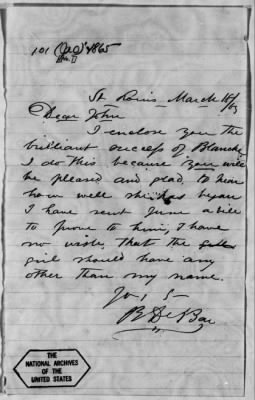 101 (JAO) 1865
St Louis March 15/65
Dear John
I enclose you the
brilliant success of Blanche
I do this because you will
be pleased and glad to hear
how well she has began
I have sent June a bill
to prove to him, I have
no wish that the
girl should have any
other than my name.
B De Bar
THE
NATIONAL ARCHIVES
OF THE
UNITED STATES